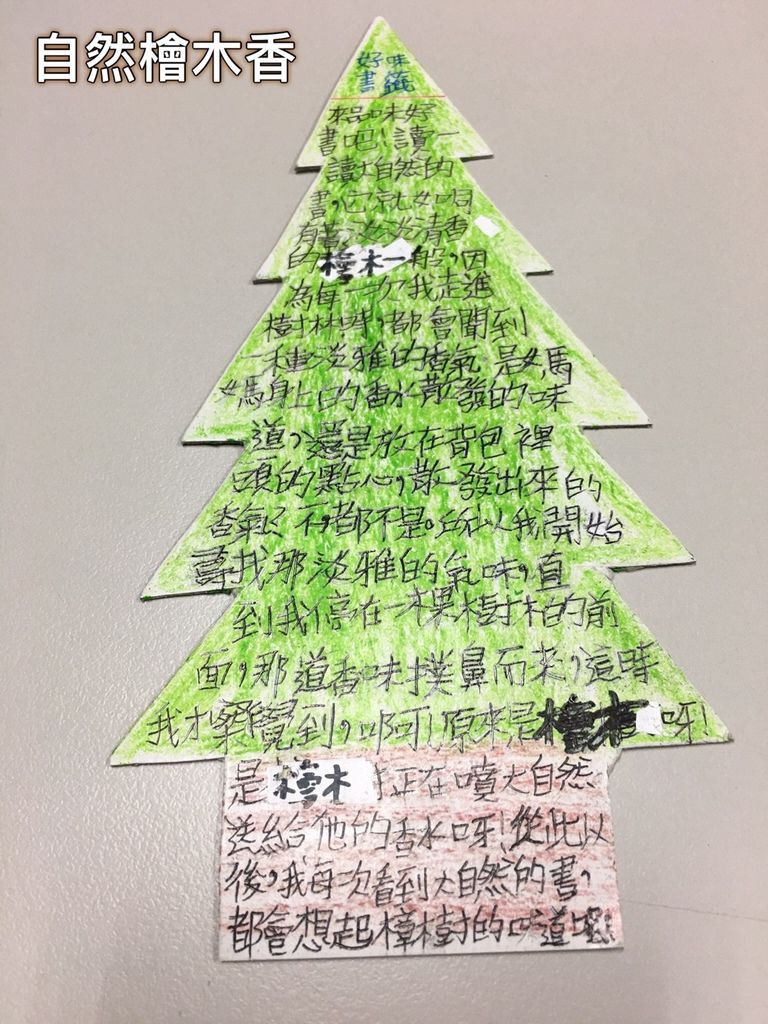 自然檜木香
好味
書籤
來品味好
書吧!讀一
讀大自然的
書,它就如同
有著淡淡清香
的檜木一般,因
為每一次我走進
樹林時,都會聞到
一種淡雅的香氣,是媽
媽身上的香水散發的味
道,還是放在背包裡
頭的點心,散發出來的
香氣?不,都不是。所以我開始
尋找那淡雅的氣味,直
到我停在一棵樹木的前
面,那道香味撲鼻而來,這時
我才察覺到,啊!原來是檜木呀!
是檜木正在噴大自然
送給他的香水呀!從此以
後,我每次看到大自然的書,
都會想起樟樹的味道呢!